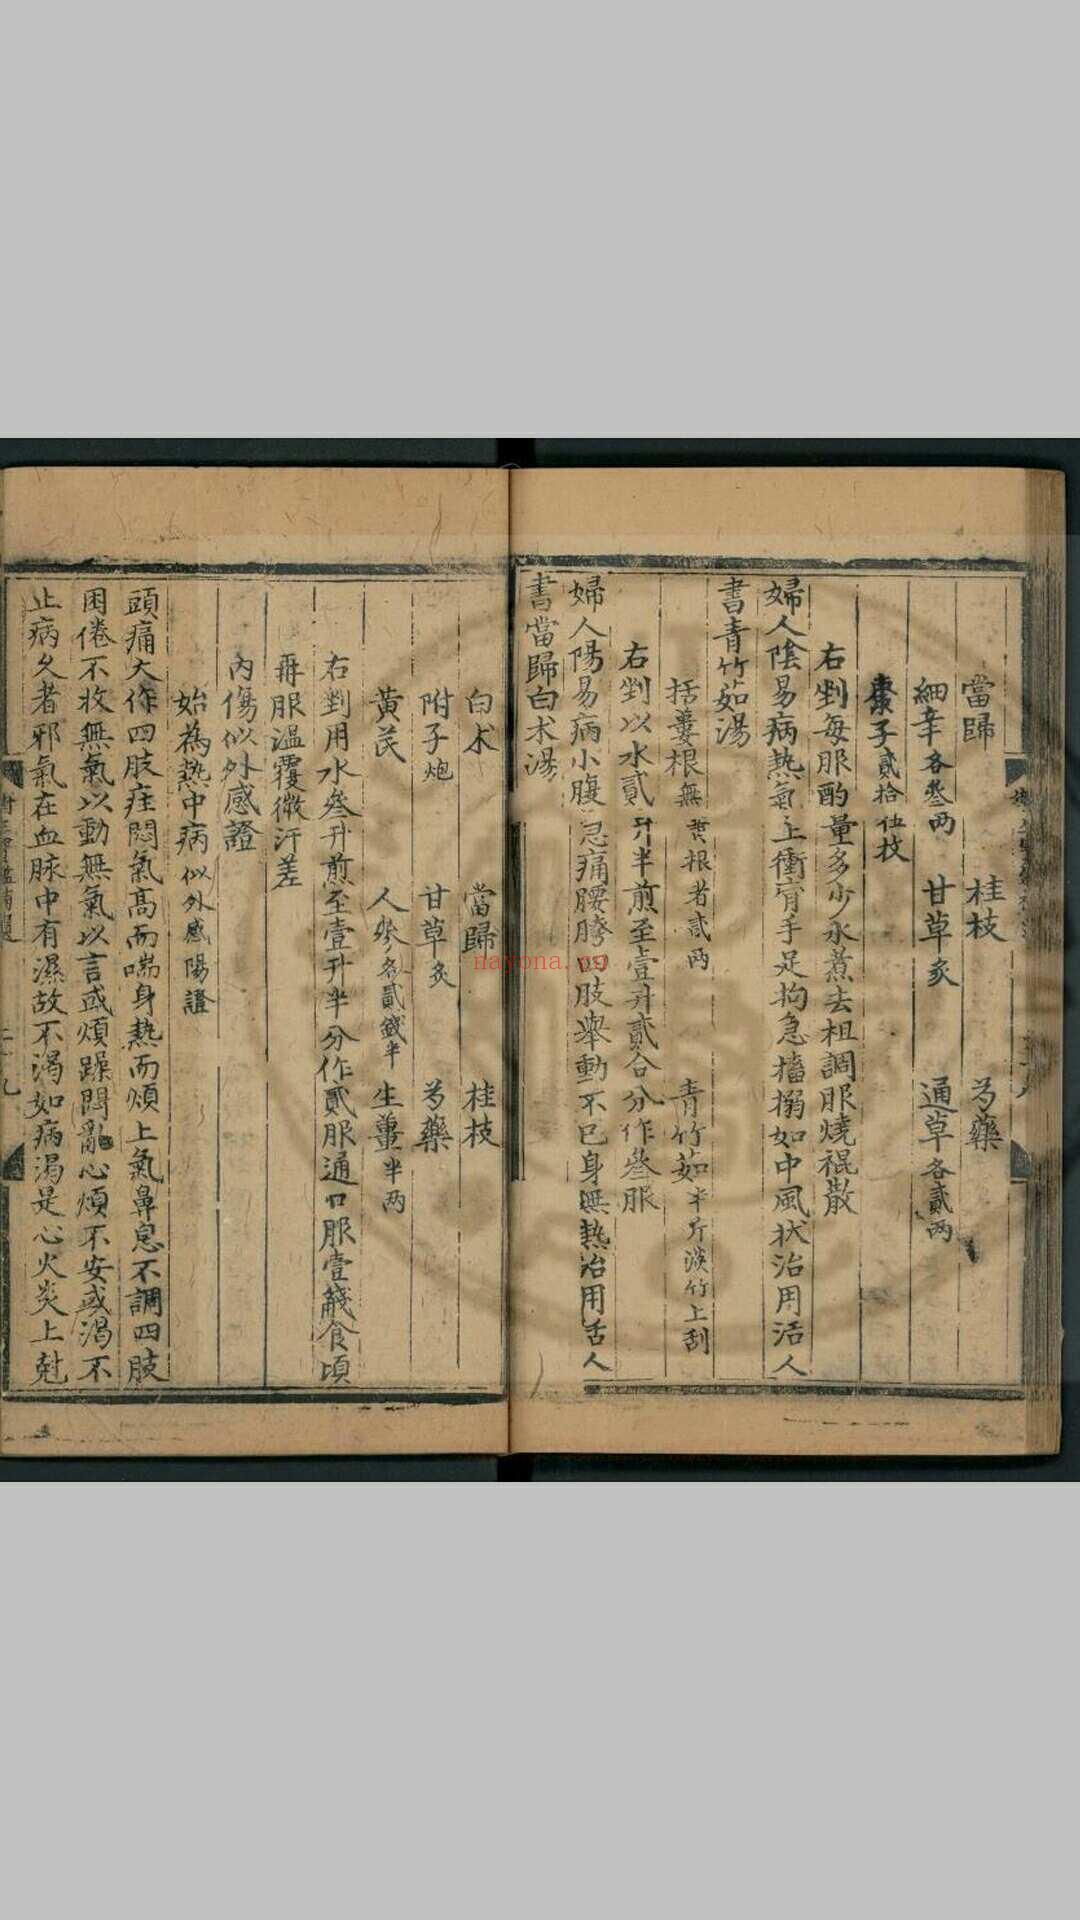 當歸 桂枝 芍藥
細辛各叄兩 甘草炙 通草各貳兩
棗子貳拾伍枚
右剉每服酌量多少水煮去柤調服燒裩散
婦人陰易病熱氣上衝胷手足拘急搐搦如中風状治用活人
書青竹茹湯
括蔞根無黄根者貳兩 青竹茹半斤淡竹上刮
右剉以水貳升半煎至壹升貳合分作叄服
婦人陽易病小腹急痛腰胯四肢舉動不已身無熱治用活人
書當歸白术湯
白术 當歸 桂枝
附子炮 甘草炙 芍藥
黃芪 人參各貳錢半 生薑半兩
右剉用水叄升煎至壹升半分作貳服通口服壹盞食頃
再服溫覆微汗差
內傷似外感證
始為熱中病似外感陽證
頭痛大作四肢疰悶氣高而喘身熱而煩上氣鼻息不調四肢
困倦不收無氣以動無氣以言或煩躁悶亂心煩不安或渴不
止病久者邪氣在血脉中有濕故不渴如病渴是心火炎上尅
nayona.cn